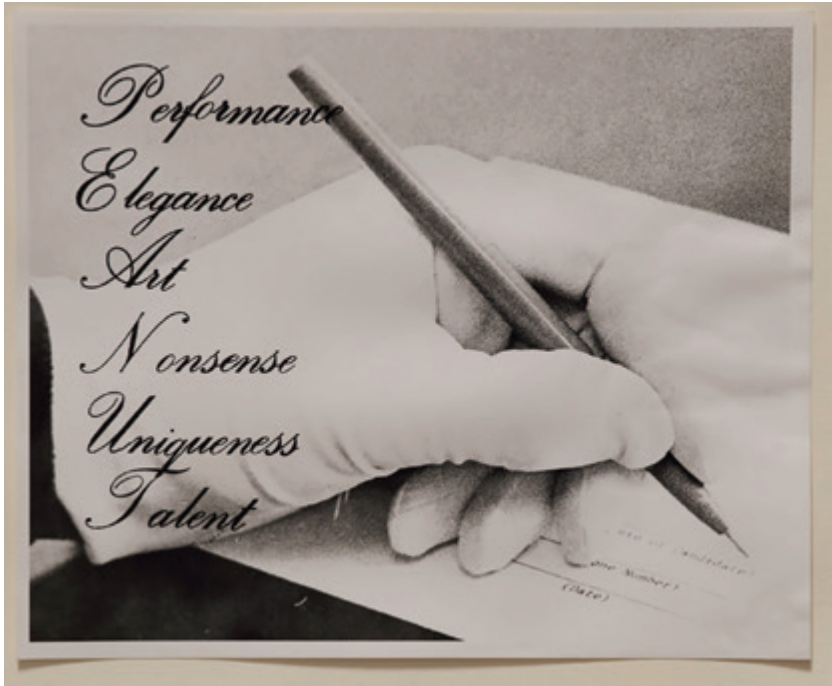 Performance
Elegance
Art
Nonsense
Uniqueness
Talent
of Candidate)
one Number)
(Date)